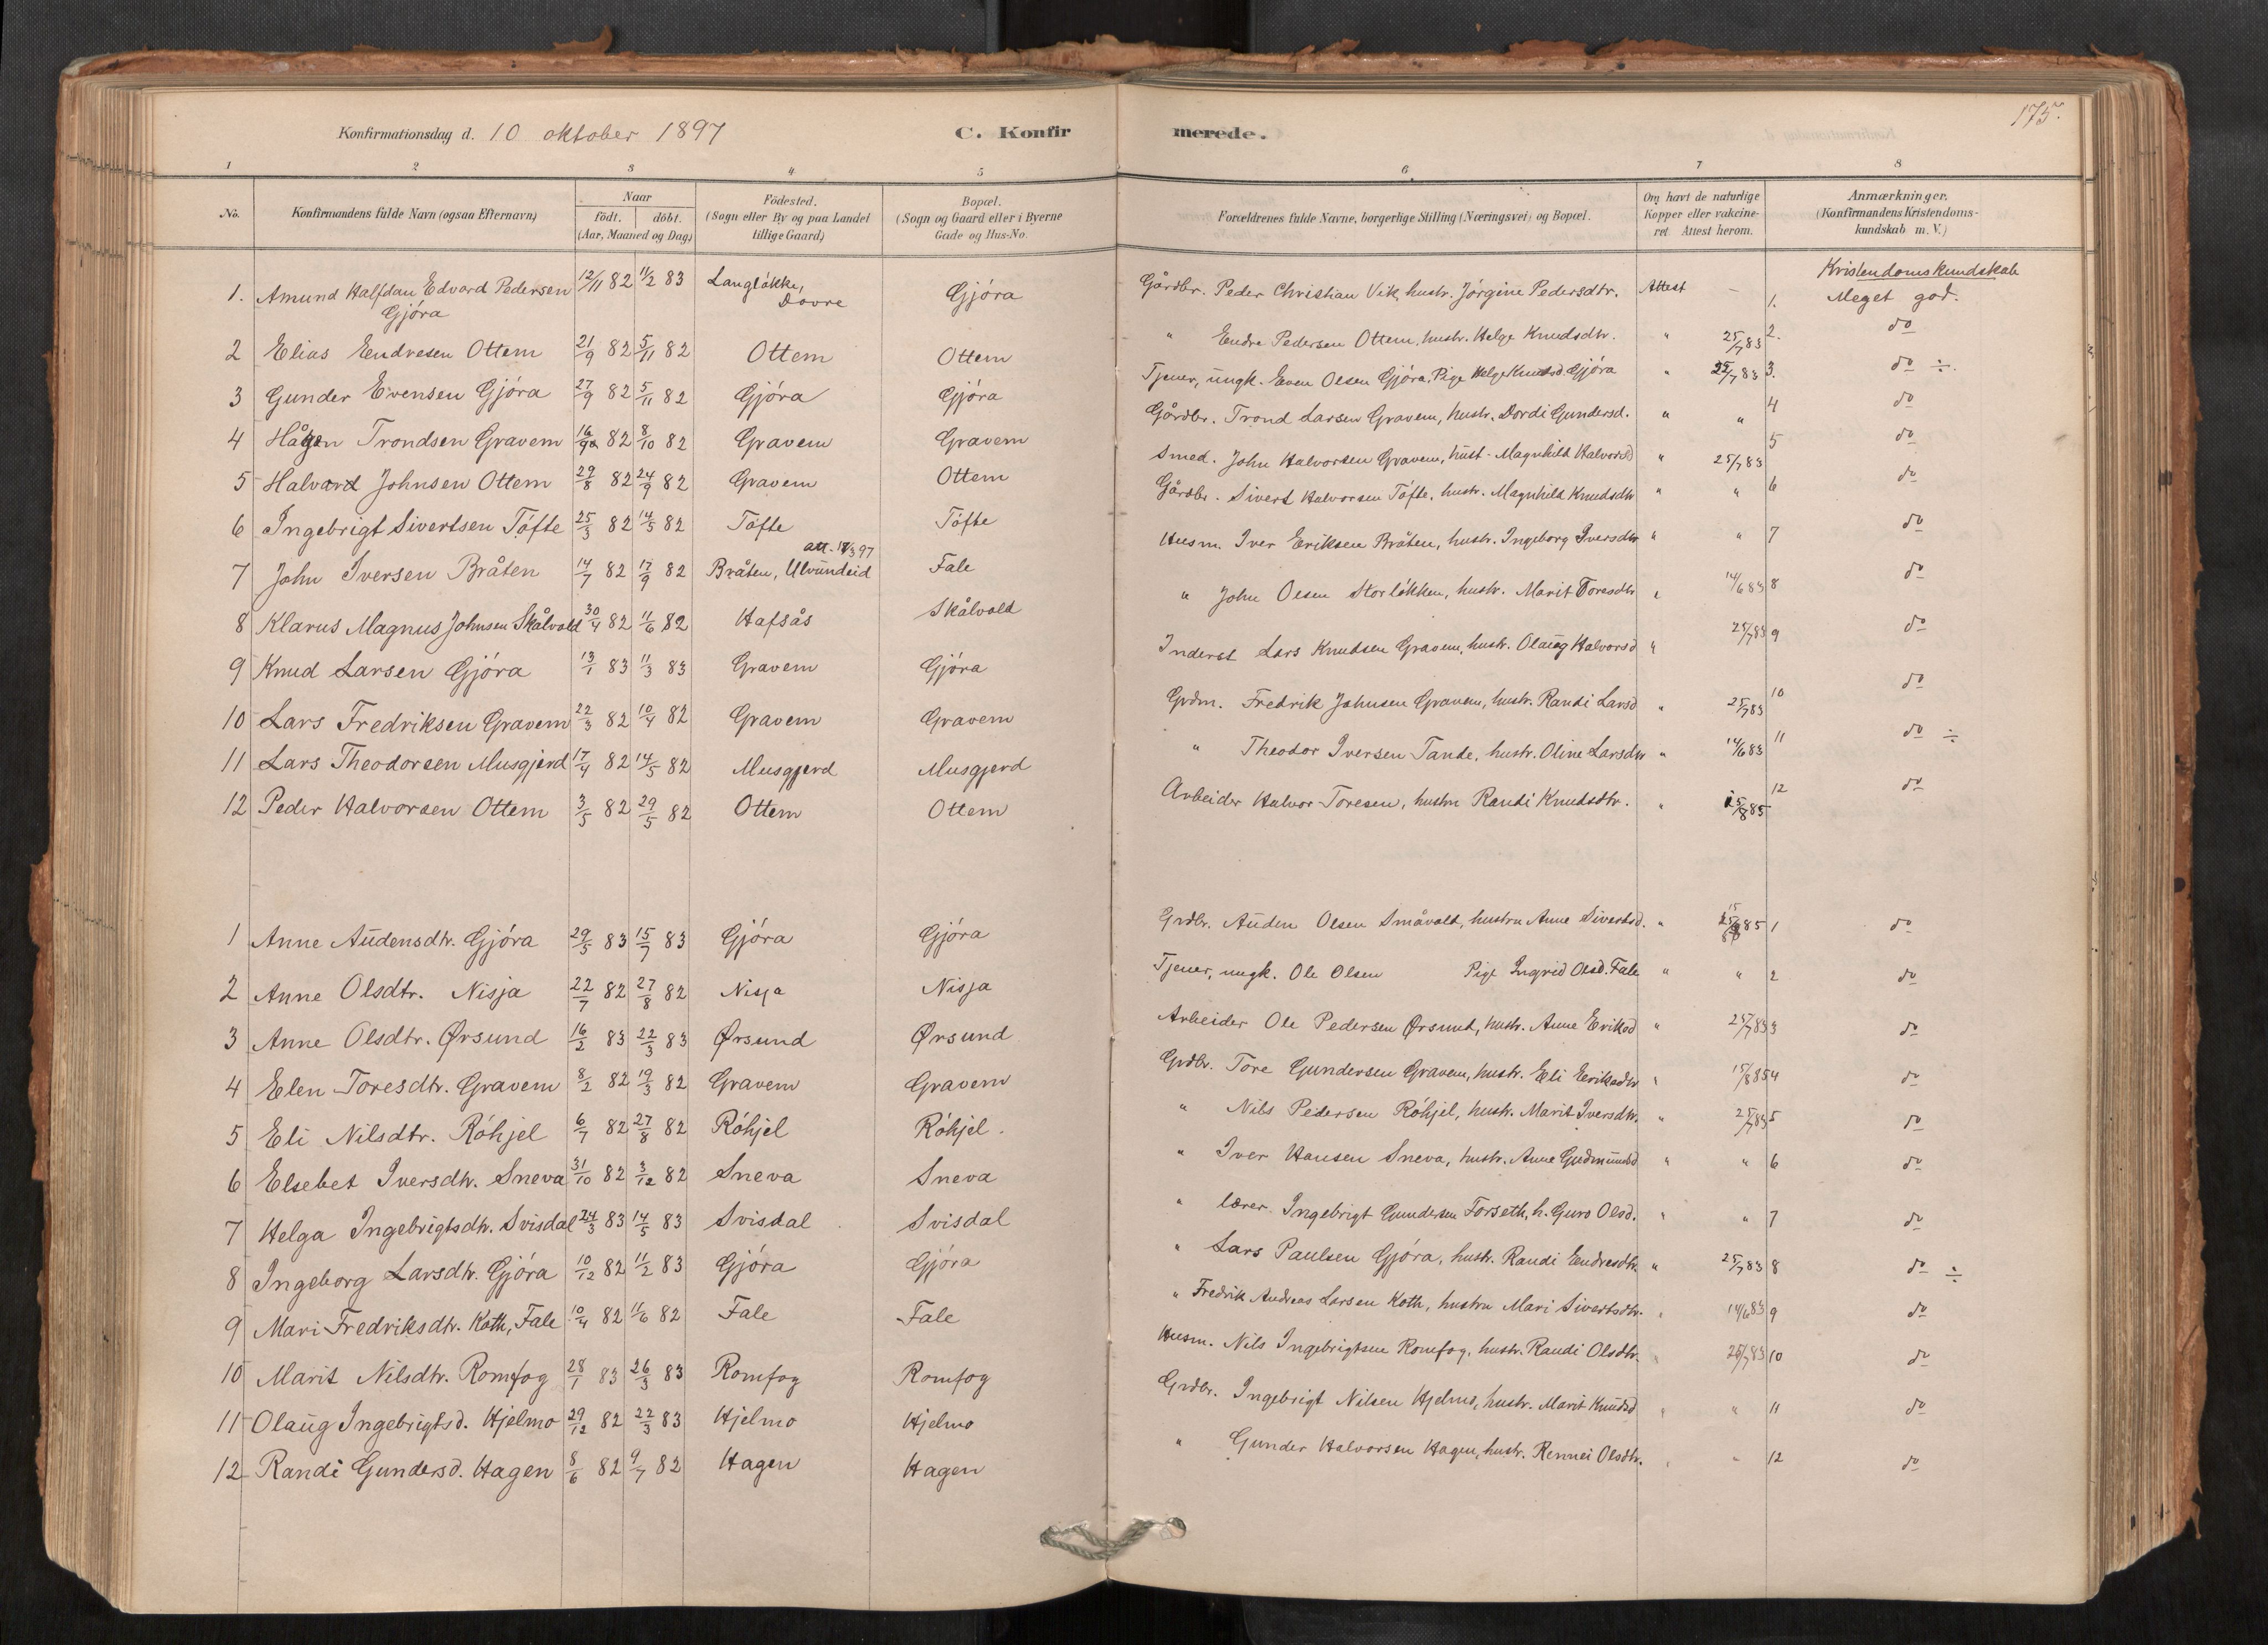 175.
Konfirmationsdag d. 10 oktober 1897 C. Konfirmerede.
1 2 3 4 5 6 7 8
No. Konfirmandens fulde Navn (ogsaa Efternavn) Naar födt. döbt. (Aar, Maaned og Dag) Födested. (Sogn eller By og paa Landet tillige Gaard) Bopæl. (Sogn og Gaard eller i Byerne Gade og Hus-No. Forældrenes fulde Navne, borgerlige Stilling (Næringsvei) og Bopæl. Om havt de naturlige Kopper eller vakcineret. Attest herom. Anmærkninger. (Konfirmandens Kristendomskundskab m. V.)
Kristendomskundskab
1. Amund Halfdan Edvard Pedersen Gjóra 12/11 82 11/2 83 Langlókke, Dovre Gjóra Gårdbr. Peder Christian Vik, hustr. Jórgine Pedersdtr. Attest – 1. Meget god.
2 Elias Endresen Ottem 21/9 82 5/11 82 Ottem Ottem " Endre Pedersen Ottem, hustr. Helge Knudsdtr. " 25/7 83 2. do
3 Gunder Evensen Gjóra 27/9 82 5/11 82 Gjóra Gjóra Tjener, ungk. Even Olsen Gjóra, Pige Helge Knudsd. Gjóra " 25/7 83 3. do ÷.
4 Hågen Trondsen Gravem 16/9 82 8/10 82 Gravem Gravem Gårdbr. Trond Larsen Gravem, hustr. Dordi Gundersd. " " 4 do
5 Halvard Johnsen Ottem 29/8 82 24/9 82 Gravem Ottem Smed. John Halvorsen Gravem, hust. Magnhild Halvorsd " 25/7 83 5 do
6 Ingebrigt Sivertsen Tófte 25/3 82 14/5 82 Tófte Tófte Gårdbr. Sivert Halvorsen Tófte, hustr. Magnhild Knudsdtr " " 6 do
7 John Iversen Bråten 14/7 82 17/9 82 Bråten, Ulvundeid Fale Husm. Iver Eriksen Bråten, hustr. Ingeborg Iversdtr " " 7 do
8 Klarus Magnus Johnsen Skålvold 30/4 82 11/6 82 Hafsås Skålvold " John Olsen Storlókken, hustr. Marit Toresdtr " 14/6 83 8 do
9 Knud Larsen Gjóra 13/1 83 11/3 83 Gravem Gjóra Inderst Lars Knudsen Gravem, hustr. Olaug Halvorsd " 25/7 83 9 do
10 Lars Fredriksen Gravem 22/3 82 10/4 82 Gravem Gravem Grdm. Fredrik Johnsen Gravem, hustr. Randi Larsd " 25/7 83 10 do
11 Lars Theodorsen Musgjerd 17/4 82 14/5 82 Musgjerd Musgjerd " Theodor Iversen Tande, hustr. Oline Larsdtr " 14/6 83 11 do ÷
12 Peder Halvorsen Ottem 3/5 82 29/5 82 Ottem Ottem Arbeider Halvor Toresen, hustru Randi Knudsdtr. " 15/8 85 12 do
1 Anne Audensdtr. Gjóra 29/5 83 15/7 83 Gjóra Gjóra Grdbr. Auden Olsen Småvold, hustru Anne Sivertsd. " 15/8 85 1 do
2 Anne Olsdtr. Nisja 22/7 82 27/8 82 Nisja Nisja Tjener, ungk. Ole Olsen Pige Ingrid Olsd. Fale " " 2 do
3 Anne Olsdtr. Ørsund 16/2 83 22/3 83 Ørsund Ørsund Arbeider Ole Pedersen Ørsund, hustr. Anne Eriksd " 25/7 83 3 do
4 Elen Toresdtr. Gravem 8/2 82 19/3 82 Gravem Gravem Grdbr. Tore Gundersen Gravem, hustr. Eli Eriksdtr " 15/8 85 4 do
5 Eli Nilsdtr. Róhjel 6/7 82 27/8 82 Róhjel Róhjel. " Nils Pedersen Róhjel, hustr. Marit Iversdtr. " 25/7 83 5 do
6 Elsebet Iversdtr. Sneva 31/10 82 3/12 82 Sneva Sneva " Iver Hansen Sneva, hustr. Anne Gudmundsd " " 6 do
7 Helga Ingebrigtsdtr. Svisdal 24/3 83 14/5 83 Svisdal Svisdal " lærer. Ingebrigt Gundersen Forseth, h. Guro Olsd. " " 7 do
8 Ingeborg Larsdtr. Gjóra 10/12 82 11/2 83 Gjóra Gjóra " Lars Paulsen Gjóra, hustr. Randi Endresdtr. " 25/7 83 8 do ÷
9 Mari Fredriksdtr. Koth, Fale 10/4 82 11/6 82 Fale Fale " Fredrik Andreas Larsen Koth, hustru Mari Sivertsdtr. " 14/6 83 9 do
10 Marit Nilsdtr. Romfog 28/1 83 26/3 83 Romfog Romfog Husm. Nils Ingebrigtsen Romfog, hustr. Randi Olsdtr. " 25/7 83 10 do
11 Olaug Ingebrigtsd. Hjelmo 29/12 82 22/3 83 Hjelmo Hjelmo Grdbr. Ingebrigt Nilsen Hjelmo, hustr. Marit Knudsd " " 11 do
12 Randi Gundersd. Hagen 8/6 82 9/7 82 Hagen Hagen " Gunder Halvorsen Hagen, hustr. Rennei Olsdtr. " " 12 do